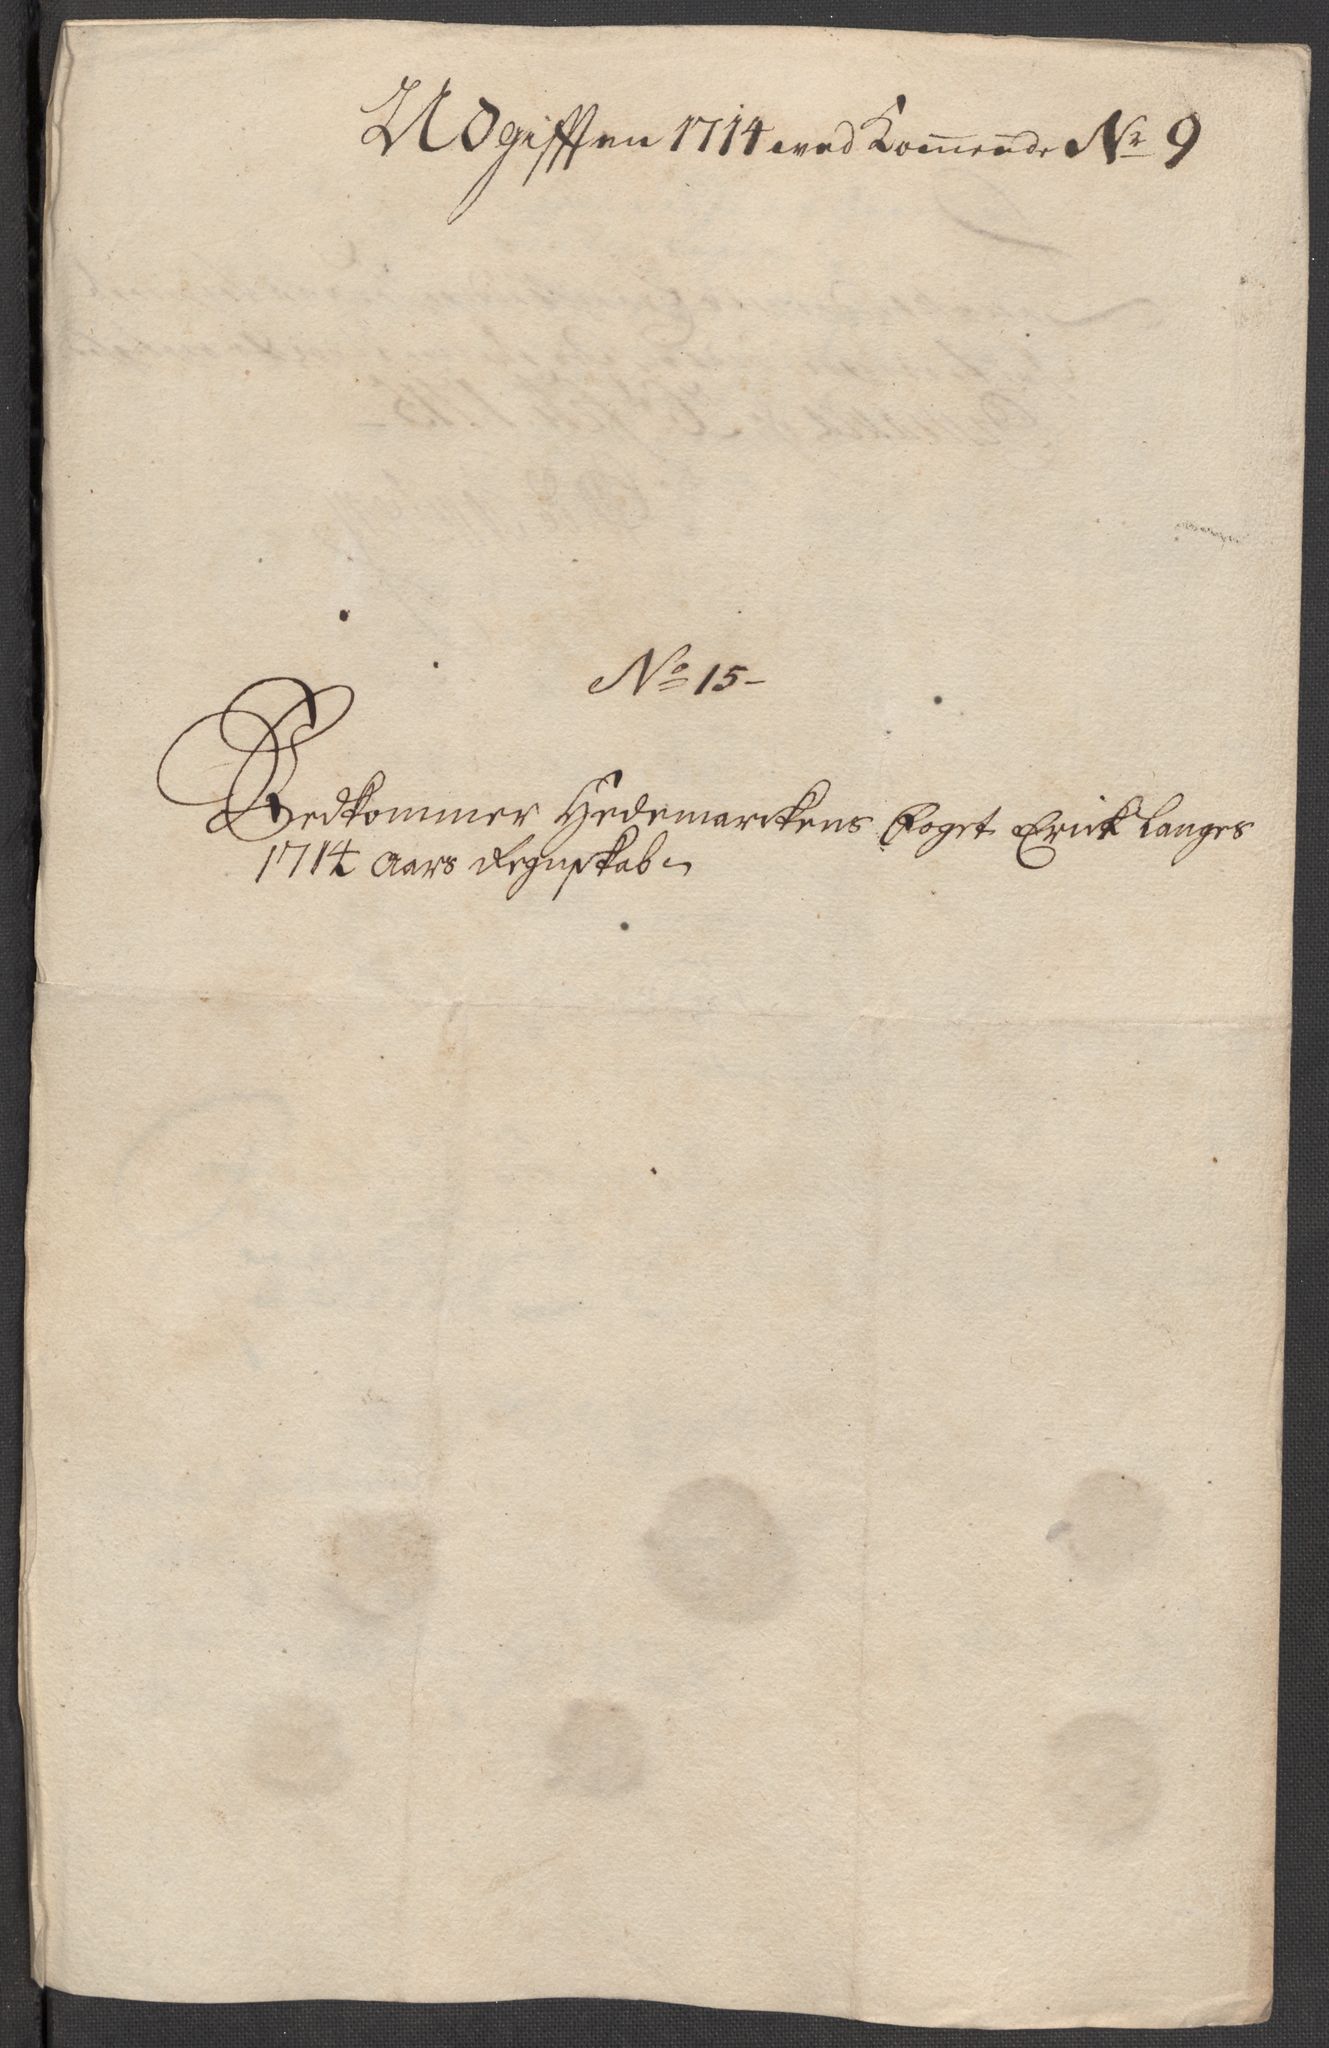 Udgifften 1714 wed Kom̅ende Nr 9
No 15-
Vedkommer Hedemarckens Foget Erick Langes
1714 Aars Regnskab